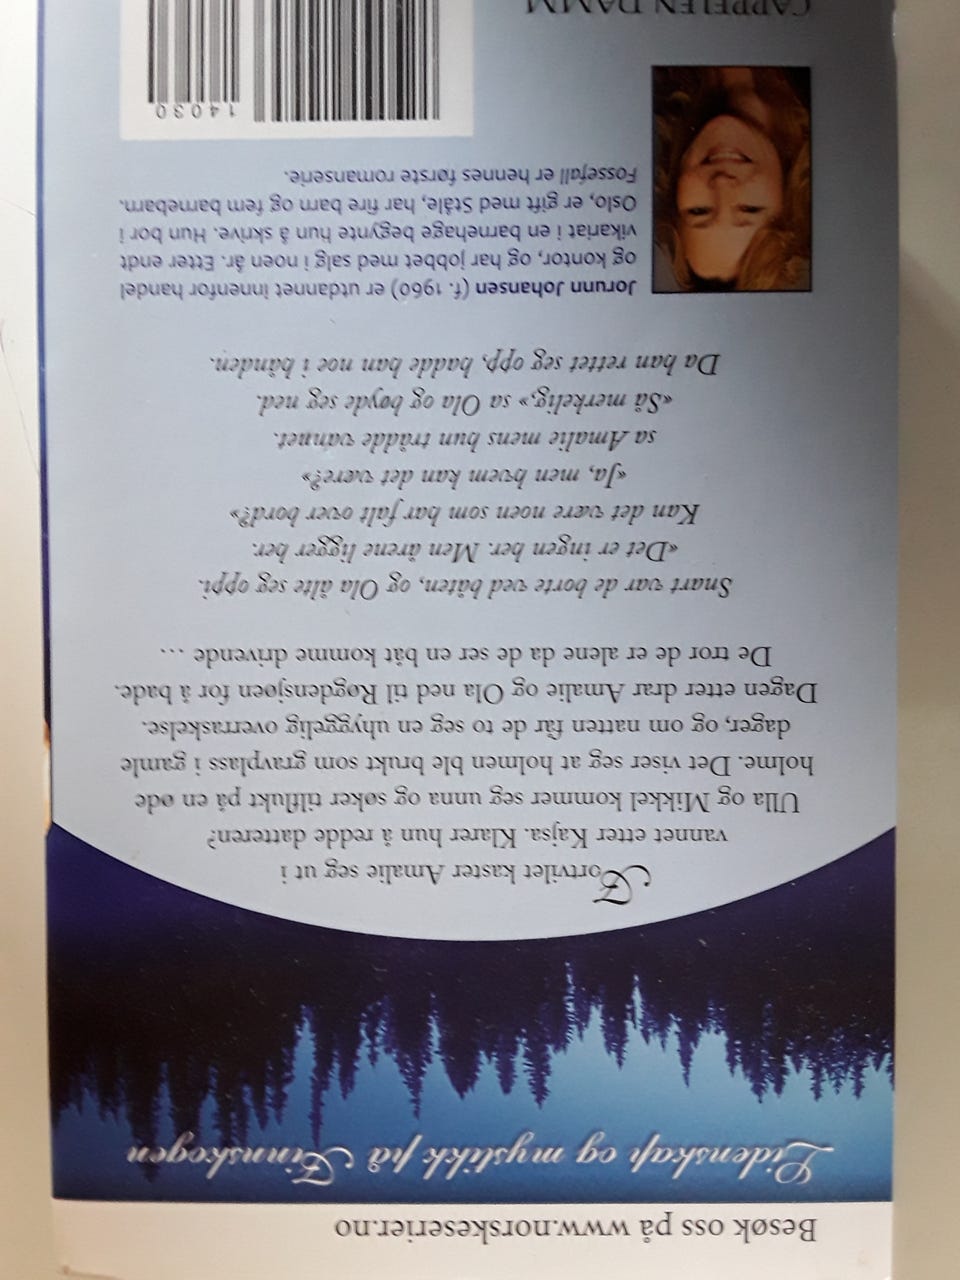 Besøk oss på www.norskeserier.no
Lidenskap og mystikk på Finnskogen
Fortvilet kaster Amalie seg ut i
vannet etter Kajsa. Klarer hun å redde datteren?
Ulla og Mikkel kommer seg unna og søker tilflukt på en øde
holme. Det viser seg at holmen ble brukt som gravplass i gamle
dager, og om natten får de to seg en uhyggelig overraskelse.
Dagen etter drar Amalie og Ola ned til Røgdensjøen for å bade.
De tror de er alene da de ser en båt komme drivende …
Snart var de borte ved båten, og Ola ålte seg oppi.
«Det er ingen her. Men årene ligger her.
Kan det være noen som har falt over bord?»
«Ja, men hvem kan det være?»
sa Amalie mens hun trådde vannet.
«Så merkelig,» sa Ola og bøyde seg ned.
Da han rettet seg opp, hadde han noe i hånden.
Jorunn Johansen (f. 1960) er utdannet innenfor handel
og kontor, og har jobbet med salg i noen år. Etter endt
vikariat i en barnehage begynte hun å skrive. Hun bor i
Oslo, er gift med Ståle, har fire barn og fem barnebarn.
Fossefall er hennes første romanserie.
14030
CAPPELEN DAMM